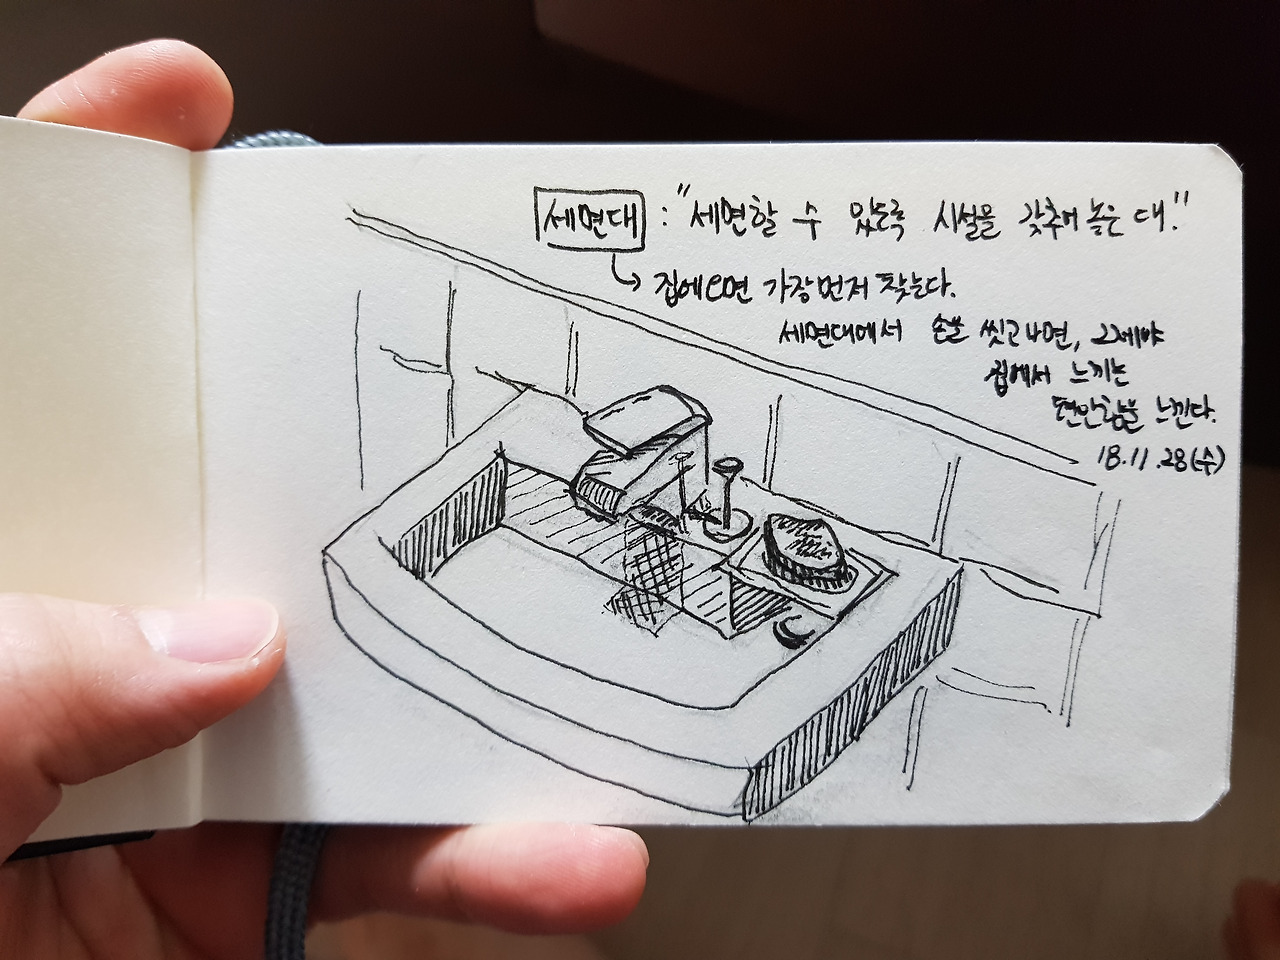 세면대 : "세면할 수 있도록 시설을 갖추어 놓은 대."
집에오면 가장먼저 찾는다.
세면대에서 손을 씻고나면, 그제야
집에서 느끼는
편안함을 느낀다.
18.11.28(수)